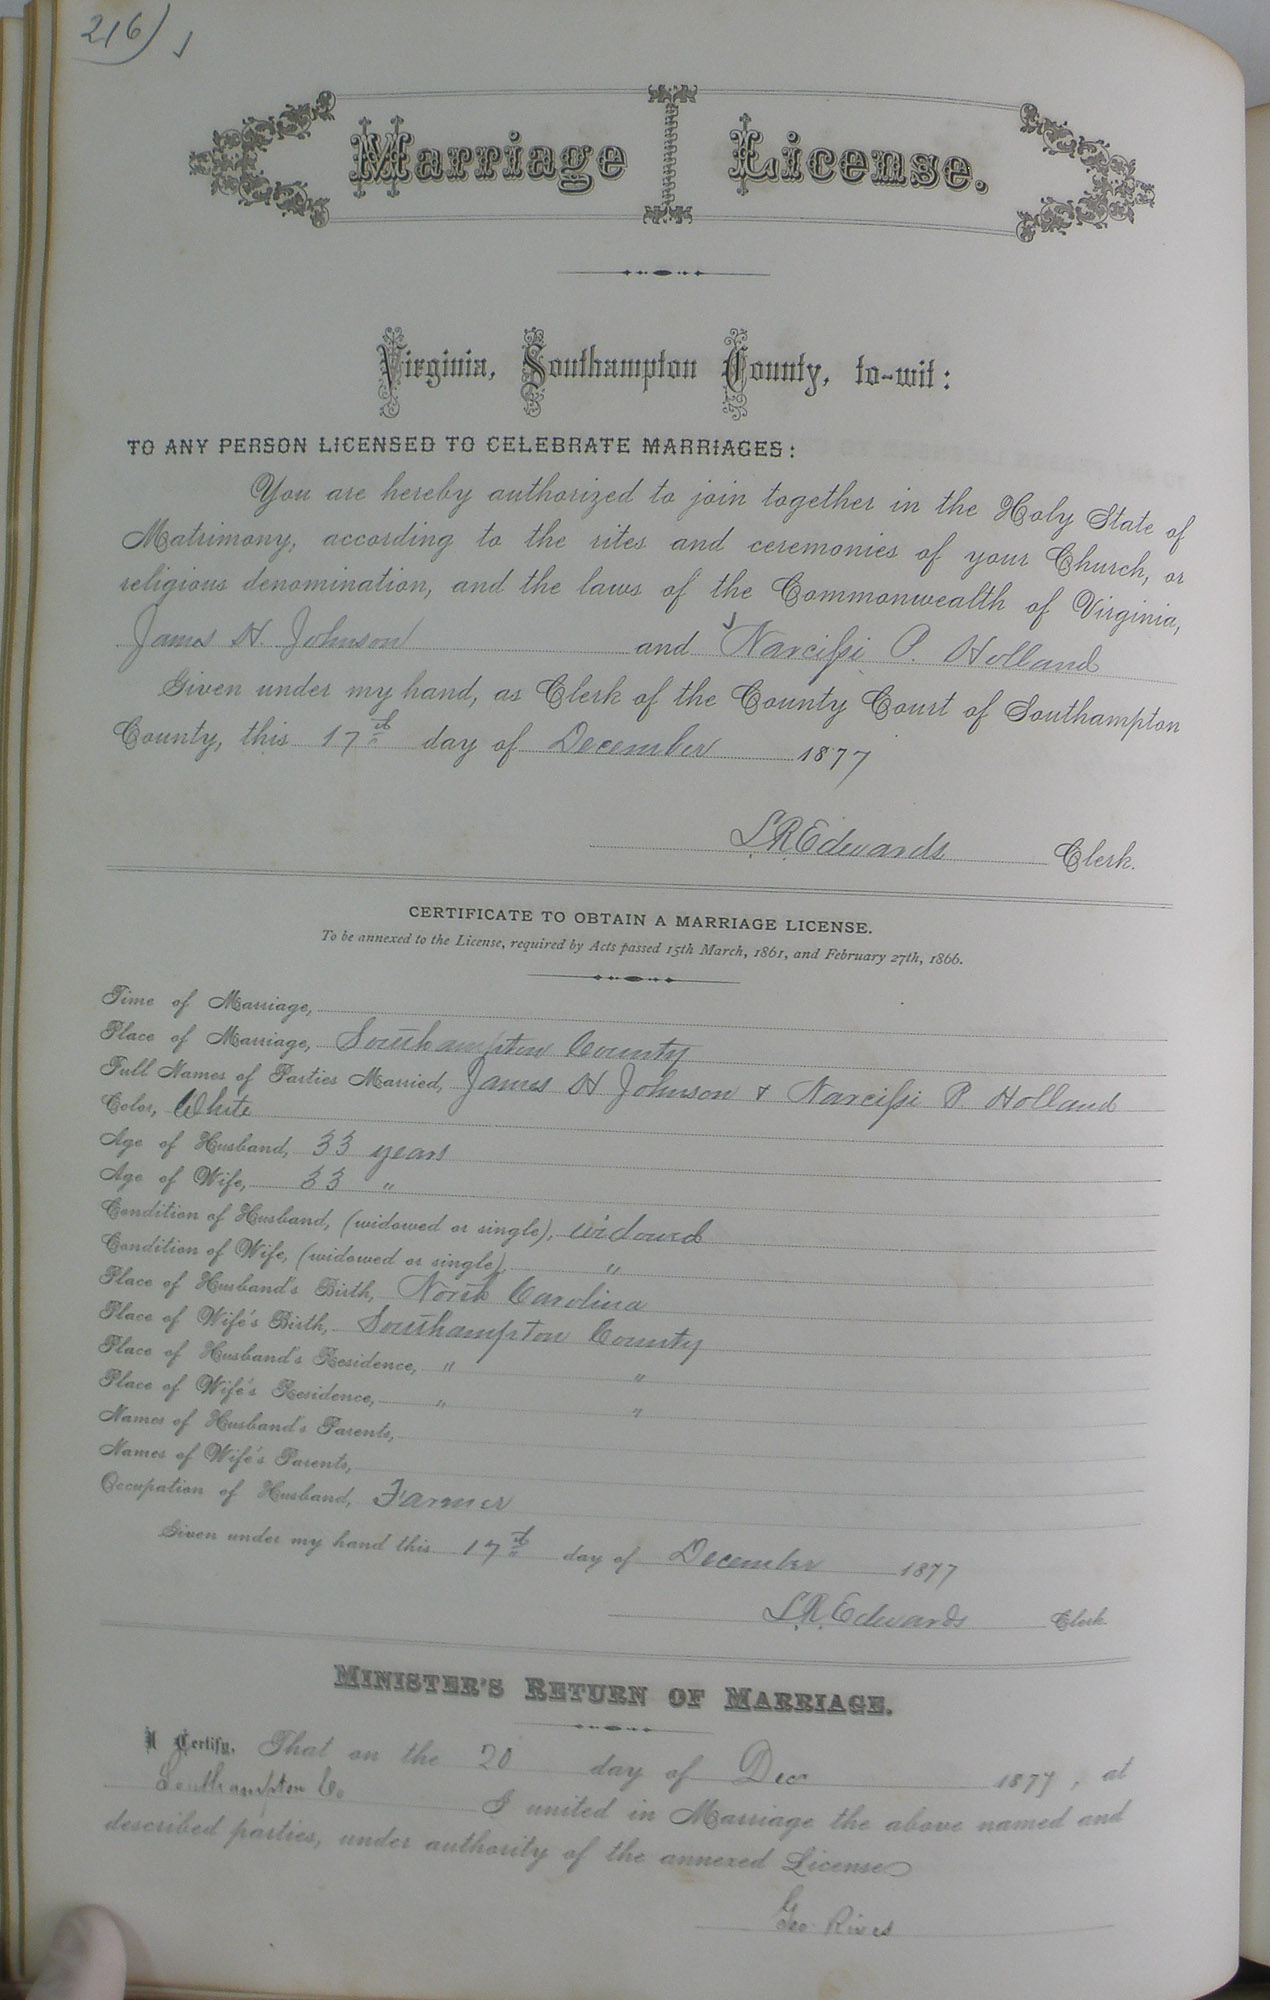 216)
Marriage License.
Virginia, Southampton County, to-wit:
TO ANY PERSON LICENSED TO CELEBRATE MARRIAGES:
You are hereby authorized to join together in the Holy State of
Matrimony, according to the rites and ceremonies of your Church, or
religious denomination, and the laws of the Commonwealth of Virginia,
James H. Johnson and Narcissi P. Holland
Given under my hand, as Clerk of the County Court of Southampton
County, this 17th day of December 1877
L.R. Edwards Clerk.
CERTIFICATE TO OBTAIN A MARRIAGE LICENSE.
To be annexed to the License, required by Acts passed 15th March, 1861, and February 27th, 1866.
Time of Marriage,
Place of Marriage, Southampton County
Full Names of Parties Married, James H Johnson & Narcissi P. Holland
Color, White
Age of Husband, 33 years
Age of Wife, 33 "
Condition of Husband, (widowed or single), widowed
Condition of Wife, (widowed or single) "
Place of Husband's Birth, North Carolina
Place of Wife's Birth, Southampton County
Place of Husband's Residence, " "
Place of Wife's Residence, " "
Names of Husband's Parents,
Names of Wife's Parents,
Occupation of Husband, Farmer
Given under my hand this 17th day of December 1877
L.R. Edwards Clerk
MINISTER'S RETURN OF MARRIAGE.
I Certify, That on the 20 day of Dec 1877, at
Southampton Co I united in Marriage the above named and
described parties, under authority of the annexed License
Geo Rives